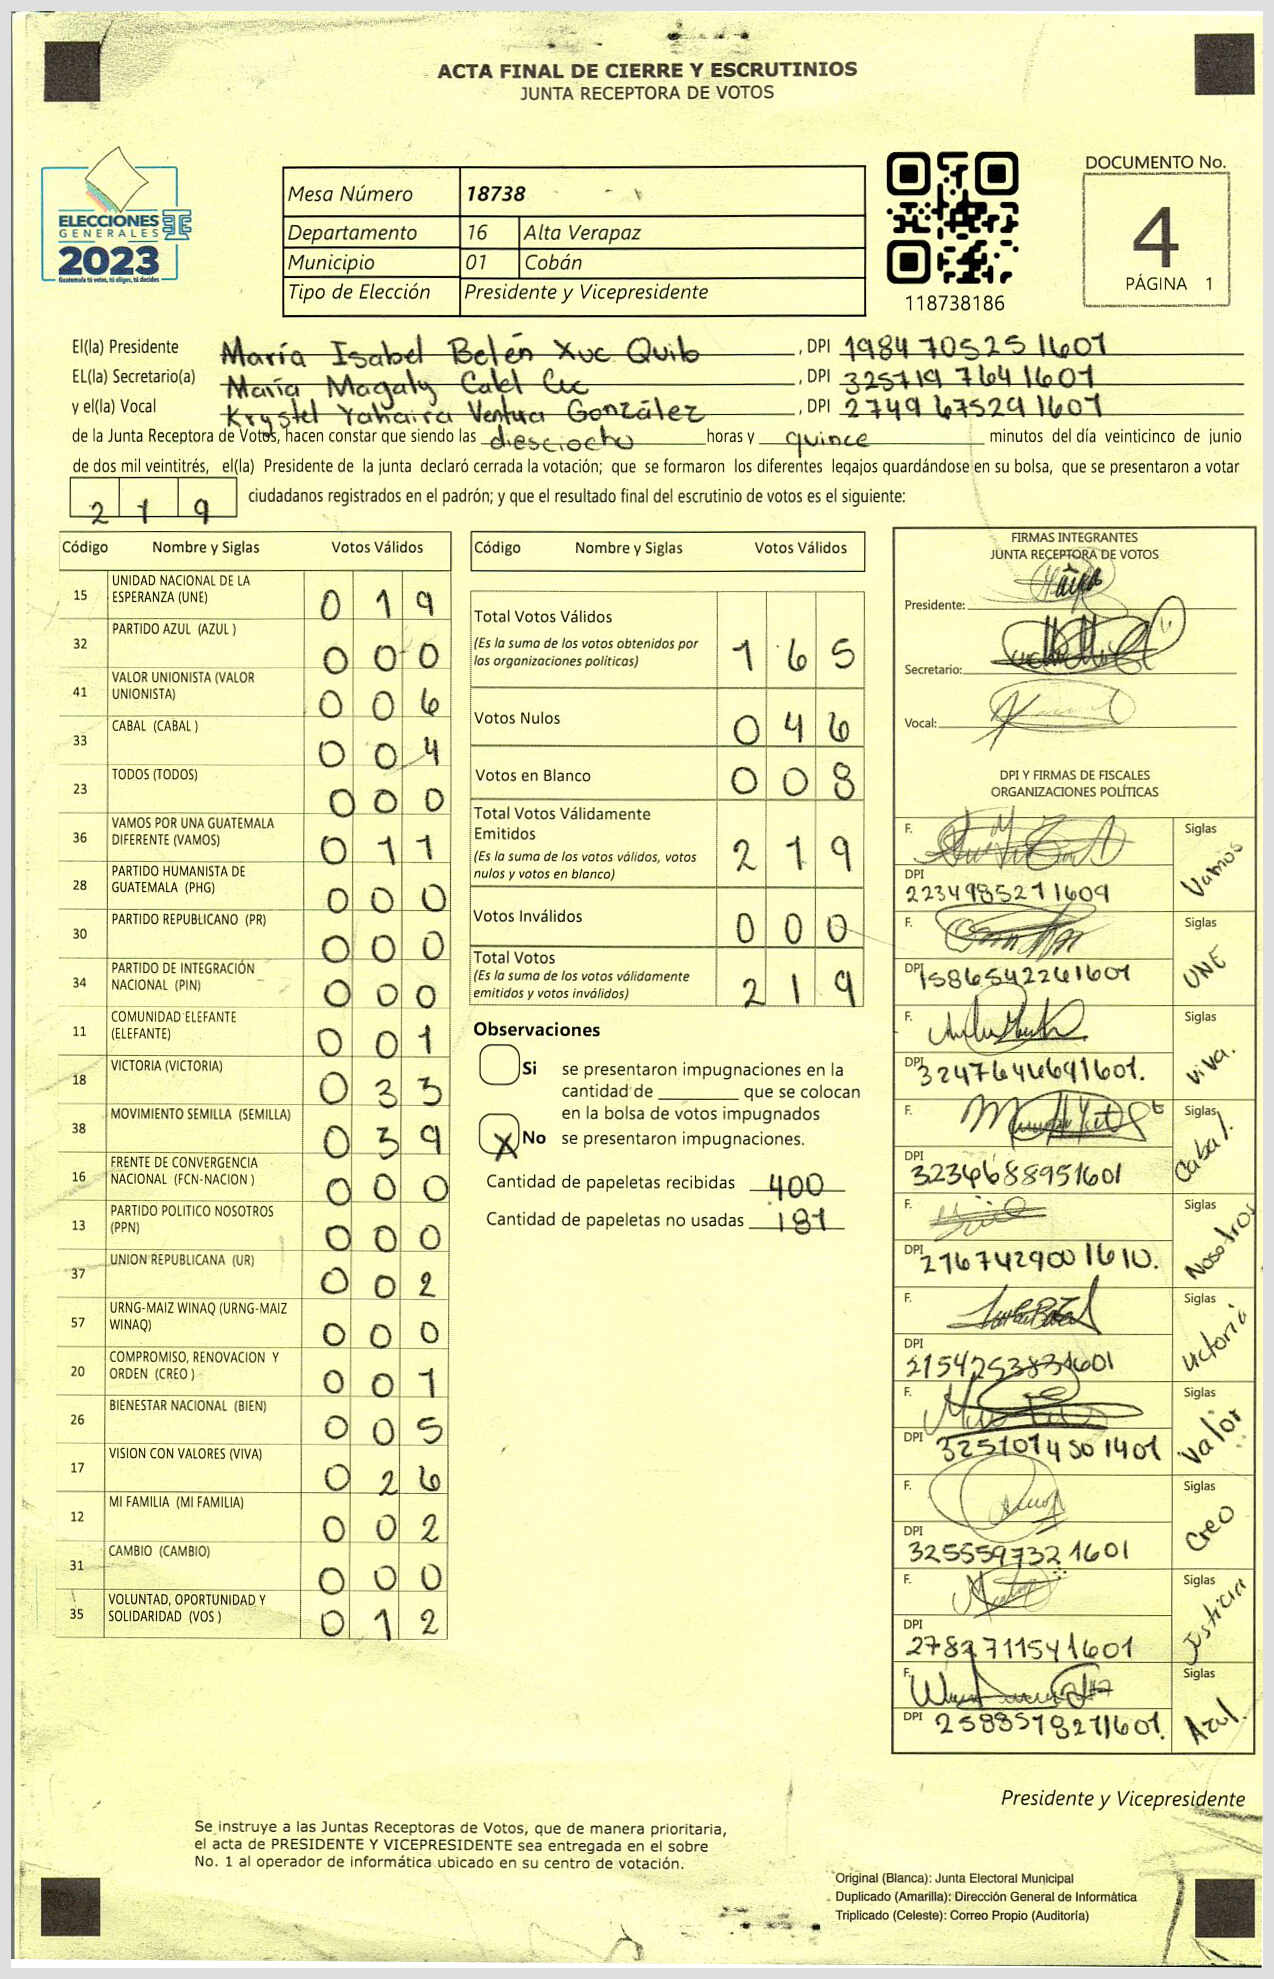 ACTA FINAL DE CIERRE Y ESCRUTINIOS
JUNTA RECEPTORA DE VOTOS
ELECCIONES
GENERALES
2023
Guatemala tú votas, tú eliges, tú decides
Mesa Número 18738
Departamento 16 Alta Verapaz
Municipio 01 Cobán
Tipo de Elección Presidente y Vicepresidente
118738186
DOCUMENTO No.
4
PÁGINA 1
El(la) Presidente María Isabel Belén Xuc Quib, DPI 1984705251601
EL(la) Secretario(a) María Magaly Cc, DPI 3257197641601
y el(la) Vocal Krystel Yahaira Ventura González, DPI 2749675291601
de la Junta Receptora de Votos, hacen constar que siendo las diesciocho horas y quince minutos del día veinticinco de junio
de dos mil veintitrés, el(la) Presidente de la junta declaró cerrada la votación; que se formaron los diferentes legajos guardándose en su bolsa, que se presentaron a votar
219 ciudadanos registrados en el padrón; y que el resultado final del escrutinio de votos es el siguiente:
Código Nombre y Siglas Votos Válidos
15 UNIDAD NACIONAL DE LA ESPERANZA (UNE) 019
32 PARTIDO AZUL (AZUL ) 000
41 VALOR UNIONISTA (VALOR UNIONISTA) 006
33 CABAL (CABAL ) 004
23 TODOS (TODOS) 000
36 VAMOS POR UNA GUATEMALA DIFERENTE (VAMOS) 011
28 PARTIDO HUMANISTA DE GUATEMALA (PHG) 000
30 PARTIDO REPUBLICANO (PR) 000
34 PARTIDO DE INTEGRACIÓN NACIONAL (PIN) 000
11 COMUNIDAD ELEFANTE (ELEFANTE) 001
18 VICTORIA (VICTORIA) 033
38 MOVIMIENTO SEMILLA (SEMILLA) 039
16 FRENTE DE CONVERGENCIA NACIONAL (FCN-NACION ) 000
13 PARTIDO POLITICO NOSOTROS (PPN) 000
37 UNION REPUBLICANA (UR) 002
57 URNG-MAIZ WINAQ (URNG-MAIZ WINAQ) 000
20 COMPROMISO, RENOVACION Y ORDEN (CREO ) 001
26 BIENESTAR NACIONAL (BIEN) 005
17 VISION CON VALORES (VIVA) 026
12 MI FAMILIA (MI FAMILIA) 002
31 CAMBIO (CAMBIO) 000
35 VOLUNTAD, OPORTUNIDAD Y SOLIDARIDAD (VOS ) 012
Código Nombre y Siglas Votos Válidos
Total Votos Válidos 165
(Es la suma de los votos obtenidos por
las organizaciones políticas)
Votos Nulos 046
Votos en Blanco 008
Total Votos Válidamente
Emitidos 219
(Es la suma de los votos válidos, votos
nulos y votos en blanco)
Votos Inválidos 000
Total Votos 219
(Es la suma de los votos válidamente
emitidos y votos inválidos)
Observaciones
Si se presentaron impugnaciones en la
cantidad de ________ que se colocan
en la bolsa de votos impugnados
X No se presentaron impugnaciones.
Cantidad de papeletas recibidas 400
Cantidad de papeletas no usadas 181
FIRMAS INTEGRANTES
JUNTA RECEPTORA DE VOTOS
Presidente:
Secretario:
Vocal:
DPI Y FIRMAS DE FISCALES
ORGANIZACIONES POLÍTICAS
F. Siglas Vamos
DPI 2234985271609
F. Siglas UNE
DPI 1586542261601
F. Siglas Viva.
DPI 3247646691601.
F. Siglas Cabal.
DPI 3234688951601
F. Siglas Nosotros
DPI 2767429001610.
F. Siglas Victoria
DPI 2154253831601
F. Siglas Valor
DPI 3251014501401
F. Siglas Creo
DPI 3255597321601
F. Siglas Justicia
DPI 2782711541601
F. Siglas Azul.
DPI 2583578271601.
Presidente y Vicepresidente
Se instruye a las Juntas Receptoras de Votos, que de manera prioritaria,
el acta de PRESIDENTE Y VICEPRESIDENTE sea entregada en el sobre
No. 1 al operador de informática ubicado en su centro de votación.
Original (Blanca): Junta Electoral Municipal
Duplicado (Amarilla): Dirección General de Informática
Triplicado (Celeste): Correo Propio (Auditoría)